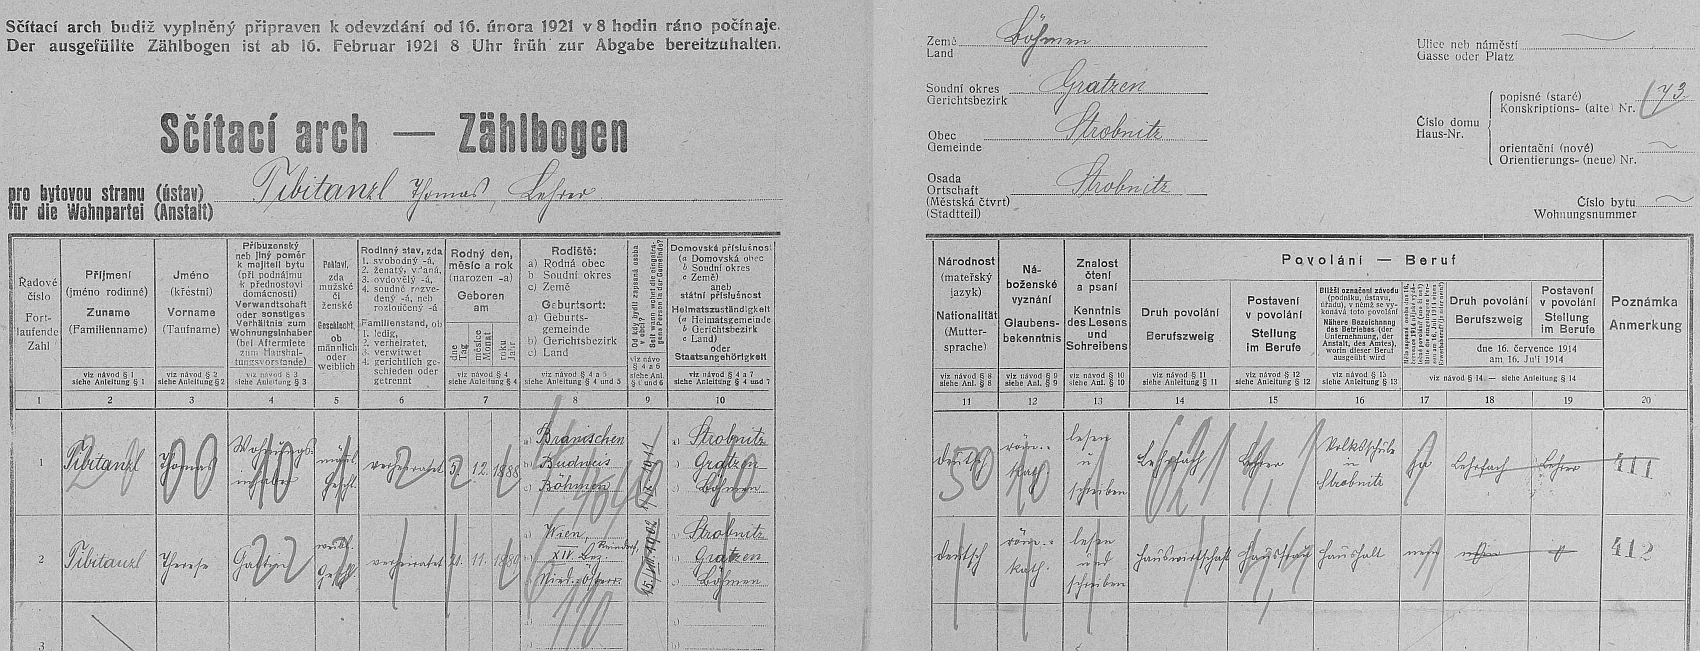 Sčítací arch budiž vyplněný připraven k odevzdání od 16. února 1921 v 8 hodin ráno počínaje.
Der ausgefüllte Zählbogen ist ab 16. Februar 1921 8 Uhr früh zur Abgabe bereitzuhalten.
Sčítací arch — Zählbogen
pro bytovou stranu (ústav)
für die Wohnpartei (Anstalt)
Tibitanzl Thomas, Lehrer
Země
Land
Böhmen
Soudní okres
Gerichtsbezirk
Gratzen
Obec
Gemeinde
Strobnitz
Osada
Ortschaft
(Městská čtvrť)
(Stadtteil)
Strobnitz
Ulice neb náměstí
Gasse oder Platz
Číslo domu
Haus-Nr.
popisné (staré)
Konskriptions- (alte) Nr.
73
orientační (nové)
Orientierungs- (neue) Nr.
Číslo bytu
Wohnungsnummer
Řadové
číslo
Fort-
laufende
Zahl
Příjmení
(jméno rodinné)
Zuname
(Familienname)
viz návod § 1
siehe Anleitung § 1
Jméno
(křestní)
Vorname
(Taufname)
viz návod § 2
siehe Anleitung § 2
Příbuzenský
neb jiný poměr
k majiteli bytu
(při podnájmu
k přednostovi
domácnosti)
Verwandtschaft
oder sonstiges
Verhältnis zum
Wohnungsinhaber
(bei Aftermiete
zum Haushal-
tungsvorstande)
viz návod § 3
siehe Anleitung § 3
Pohlaví,
zda
mužské
či
ženské
Geschlecht,
ob
männlich
oder
weiblich
Rodinný stav, zda
1. svobodný -á,
2. ženatý, vdaná,
3. ovdovělý -á,
4. soudně rozve-
dený -á, neb
rozloučený -á
Familienstand, ob
1. ledig,
2. verheiratet,
3. verwitwet
4. gerichtlich ge-
schieden oder
getrennt
Rodný den,
měsíc a rok
(narozen -a)
Geboren
am
dne
Tag
měsíce
Monat
roku
Jahr
viz návod § 4
siehe Anleitung § 4
Rodiště:
a) Rodná obec
b) Soudní okres
c) Země
Geburtsort:
a) Geburts-
gemeinde
b) Gerichtsbezirk
c) Land
viz návod § 4 a 5
siehe Anleitung § 4 und 5
Od kdy bydlí zapsaná osoba
v obci?
Seit wann wohnt die eingetra-
gene Person in der Gemeinde?
Domovská příslušnost
(a Domovská obec
b Soudní okres
c Země)
aneb
státní příslušnost
Heimatszuständigkeit
(a Heimatsgemeinde
b Gerichtsbezirk
c Land)
oder
Staatsangehörigkeit
viz návod § 4 a 7
siehe Anleitung § 4 und 7
Národnost
(mateřský
jazyk)
Nationalität
(Mutter-
sprache)
viz návod § 8
siehe Anl. § 8
Ná-
boženské
vyznání
Glaubens-
bekenntnis
viz návod § 9
siehe Anl. § 9
Znalost
čtení
a psaní
Kenntnis
des Lesens
und
Schreibens
viz návod § 10
siehe Anl. § 10
Povolání — Beruf
Druh povolání
Berufszweig
viz návod § 11
siehe Anleitung § 11
Postavení
v povolání
Stellung
im Berufe
viz návod § 12
siehe Anleitung § 12
Bližší označení závodu
(podniku, ústavu,
úřadu), v němž se vy-
konává toto povolání
Nähere Bezeichnung
des Betriebes (der
Unternehmung, der
Anstalt, des Amtes),
worin dieser Beruf
ausgeübt wird
viz návod § 13
siehe Anleitung § 13
Druh povolání
Berufszweig
Postavení
v povolání
Stellung
im Berufe
dne 16. července 1914
am 16. Juli 1914
viz návod § 14. — siehe Anleitung § 14
Poznámka
Anmerkung
1 2 3 4 5 6 7 8 9 10 11 12 13 14 15 16 17 18 19 20
1 Tibitanzl Thomas Wohnungs-
inhaber männl.
Geschl. verheiratet 5. 12. 1888
a) Branischen
b) Budweis
c) Böhmen
a) Strobnitz
b) Gratzen
c) Böhmen
deutsch röm.-
kath. lesen
u.
schreiben Lehrfach Lehrer Volksschule
in
Strobnitz Ja Lehrfach Lehrer 411
2 Tibitanzl Therese Gattin weibl.
Geschl. verheiratet 21. 11. 1889
a) Wien,
b) XIV. Bez.
c) Nied.-Österr.
15. VIII. 1902
a) Strobnitz
b) Gratzen
c) Böhmen
deutsch röm.-
kath. lesen
und
schreiben Hauswirtschaft Hausfrau Haushalt nein 412
3